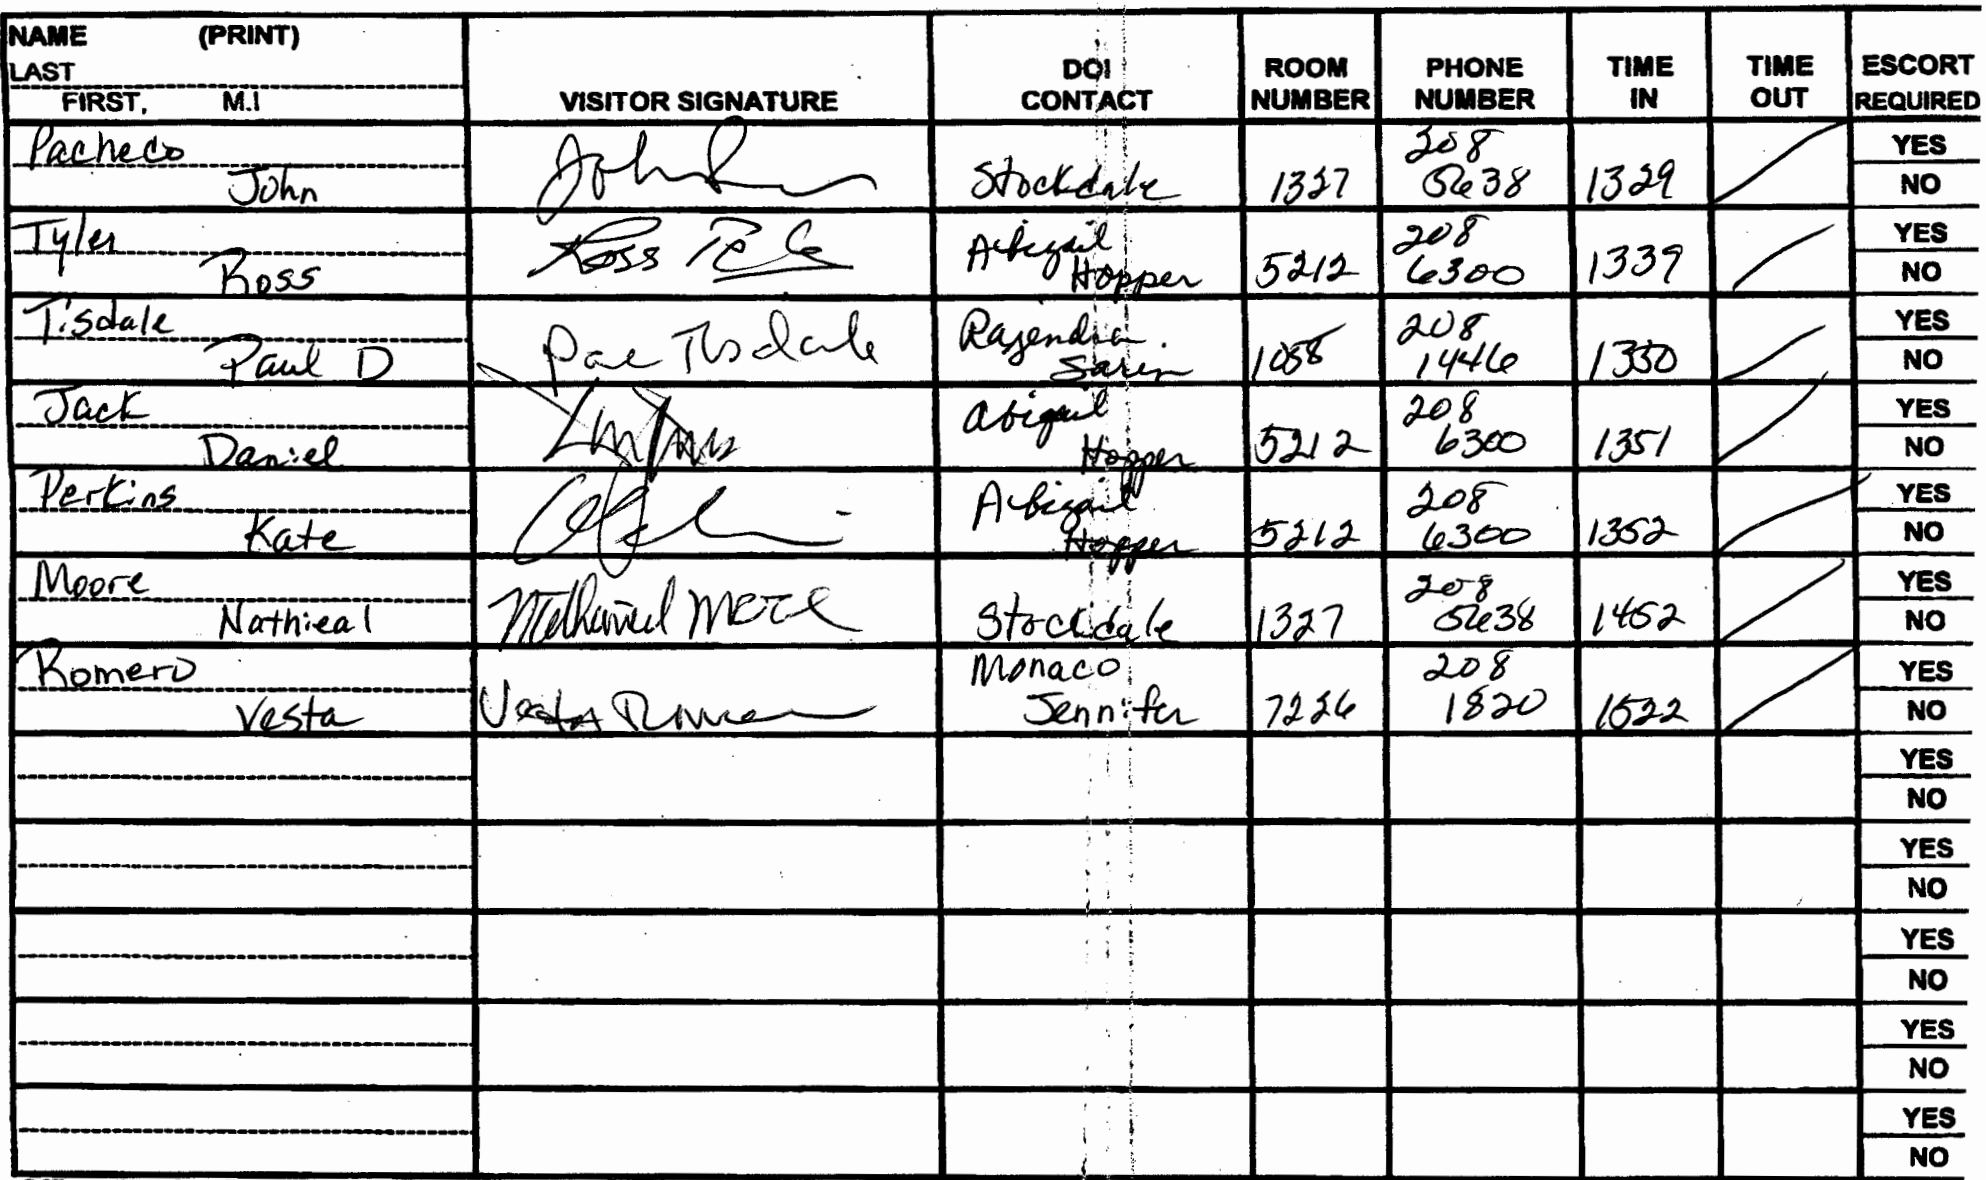 NAME (PRINT)
LAST
FIRST, M.I
VISITOR SIGNATURE
DOI
CONTACT
ROOM
NUMBER
PHONE
NUMBER
TIME
IN
TIME
OUT
ESCORT
REQUIRED
Pacheco
John
John
Stockdale
1327
208
5638
1329
YES
NO
Tyler
Ross
Ross
Abigail
Hopper
5212
208
6300
1339
YES
NO
Tisdale
Paul D
Tisdale
Rajendra
Sarin
1058
208
1446
1350
YES
NO
Jack
Daniel
Abigail
Hopper
5212
208
6300
1351
YES
NO
Perkins
Kate
Abigail
Hopper
5212
208
6300
1352
YES
NO
Moore
Nathieal
Nathaniel Moore
Stockdale
1327
208
5638
1452
YES
NO
Romero
Vesta
Vesta Romero
Monaco
Jennifer
7226
208
1820
1522
YES
NO
YES
NO
YES
NO
YES
NO
YES
NO
YES
NO